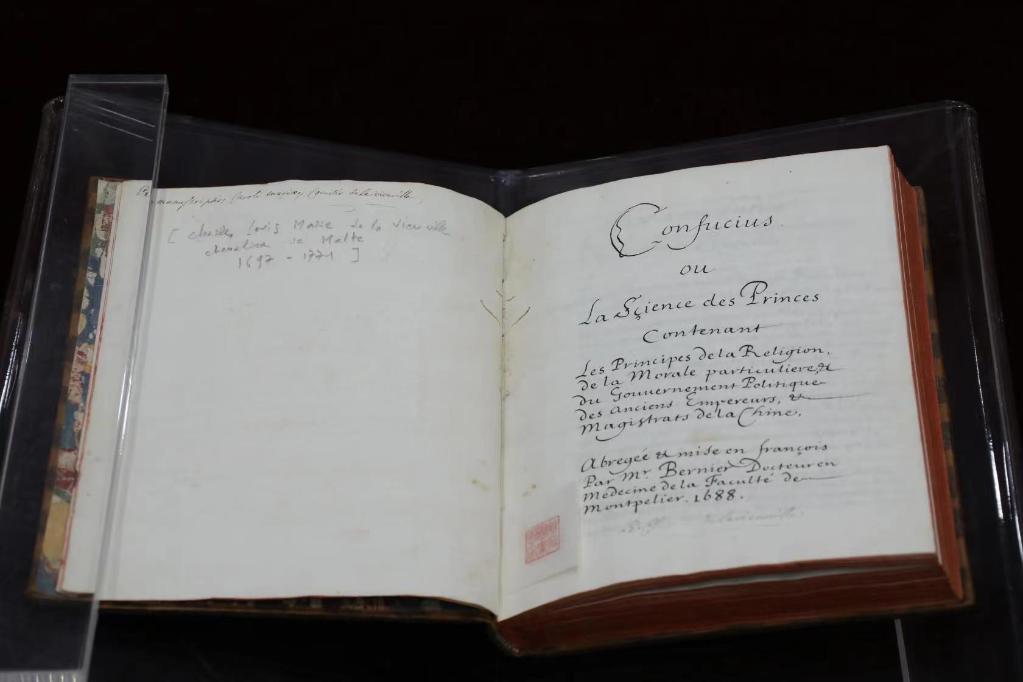 manuscriptis Caroli mariae Comitis de la vieuville.
[ Charles Louis Marie de la Vieuville
chevalier de Malte
1697 - 1771 ]
Confucius
ou
La Sçience des Princes
Contenant
Les Principes de la Religion,
de la Morale particuliere, &
du Gouvernement Politique
des anciens Empereurs, &
Magistrats de la Chine,
Abregée & mise en françois
Par Mr. Bernier Docteur en
Medecine de la Faculté de
Montpelier. 1688.